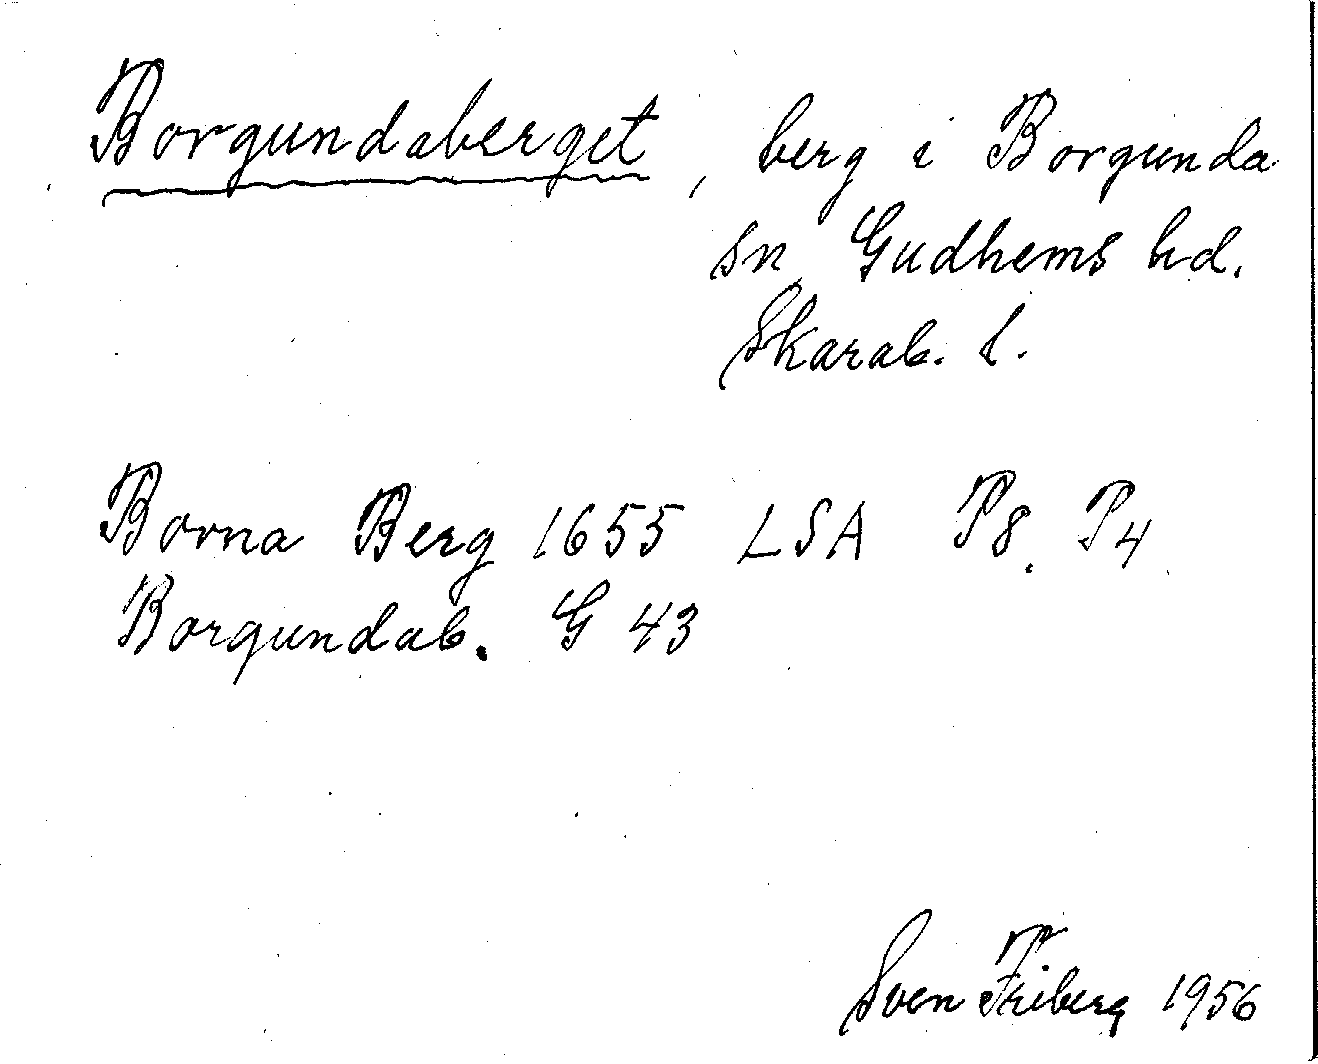 Borgundaberget, berg i Borgunda
sn Gudhems hd.
Skarab. l.
Borna Berg 1655 LSA P8. P4
Borgundab. G 43
Sven Friberg 1956